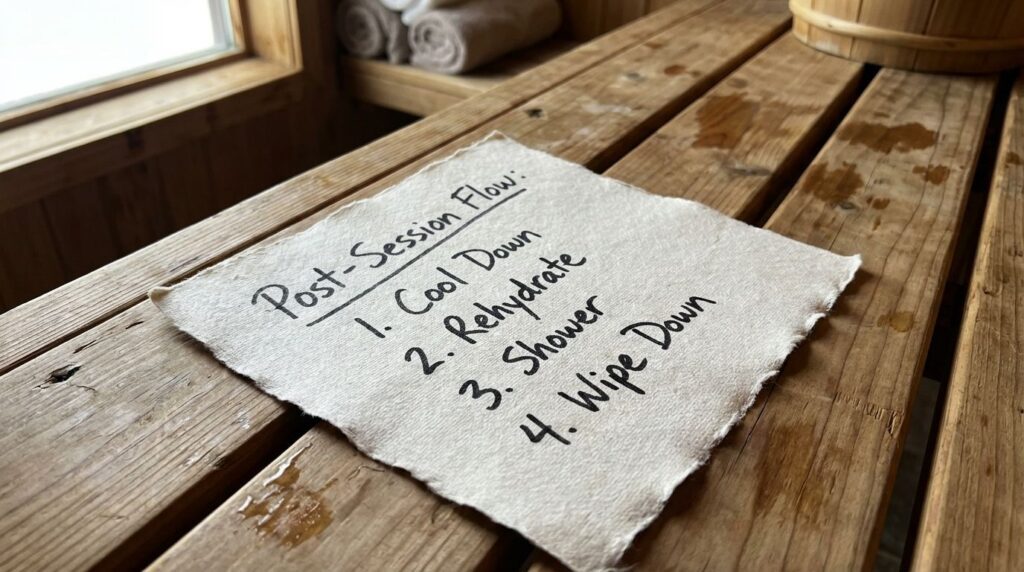 Post-Session Flow:
1. Cool Down
2. Rehydrate
3. Shower
4. Wipe Down